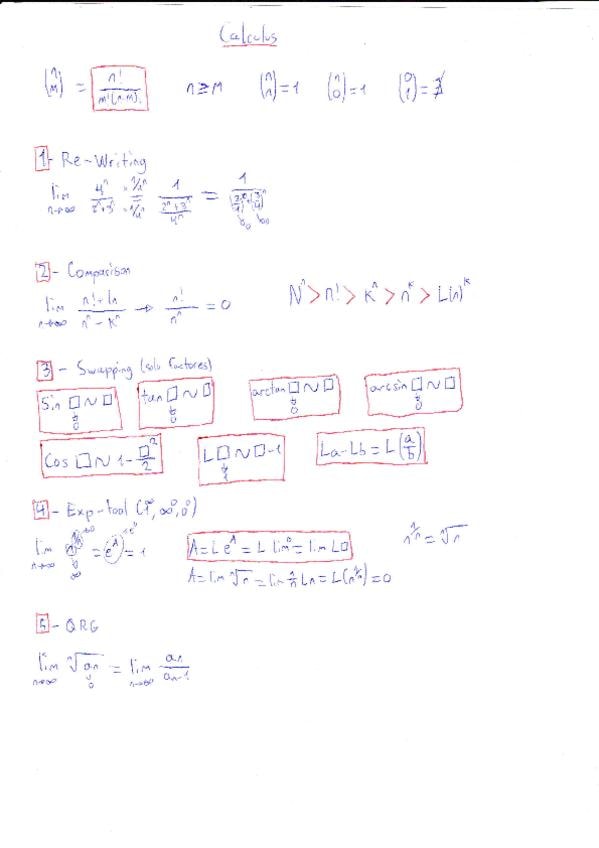 Calculus
(n m) = n! / m!(n-m)!   n ≥ m   (n n) = 1   (n 0) = 1   (0 1) =
1- Re-Writing
lim n→∞ 4ⁿ / 2ⁿ+3ⁿ ·1/4ⁿ = ·1/4ⁿ 1 / (2ⁿ+3ⁿ / 4ⁿ) = 1 / ((2/4)ⁿ+(3/4)ⁿ) ↳0 ↳0
2- Comparison
lim n→∞ n!+Ln / nⁿ-kⁿ → n! / nⁿ = 0   Nⁿ > n! > kⁿ > nᵏ > L(n)ᵏ
3- Swapping (solo factores)
Sin □ ~ □ ↓ 0   tan □ ~ □ ↓ 0   arctan □ ~ □ ↓ 0   arcsin □ ~ □ ↓ 0
Cos □ ~ 1 - □²/2   L□ ~ □-1 ↓ 1   La-Lb = L(a/b)
4- Exp-tool (1^∞, ∞⁰, 0⁰)
lim n→∞ = e^A = 1   A = L e^A = L lim □ = lim L□   n^(1/n) = ⁿ√n
A = lim ⁿ√n = lim 1/n Ln = L(n^(1/n)) = 0
5- QRG
lim n→∞ ⁿ√an ↓ 0 = lim n→∞ an / an-1